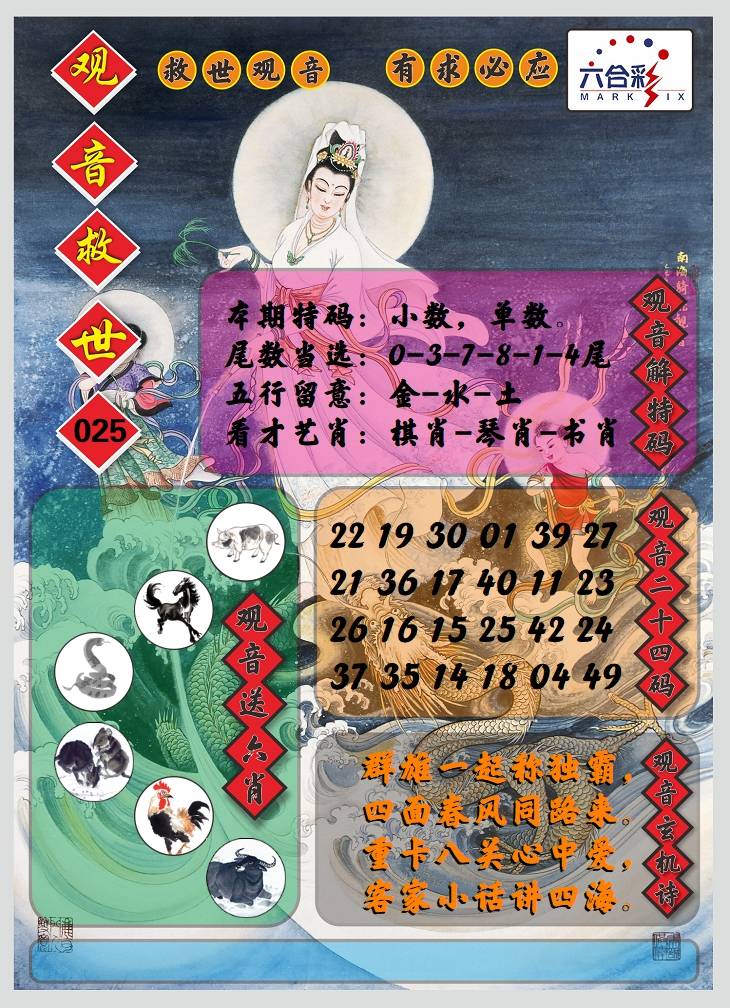 观音救世
025
救世观音 有求必应
六合彩
MARK SIX
本期特码：小数，单数。
尾数当选：0-3-7-8-1-4尾
五行留意：金-水-土
看才艺肖：棋肖-琴肖-书肖
观音解特码
观音送六肖
22 19 30 01 39 27
21 36 17 40 11 23
26 16 15 25 42 24
37 35 14 18 04 49
观音二十四码
群雄一起称独霸，
四面春风同路来。
重卡八关心中爱，
客家小话讲四海。
观音玄机诗